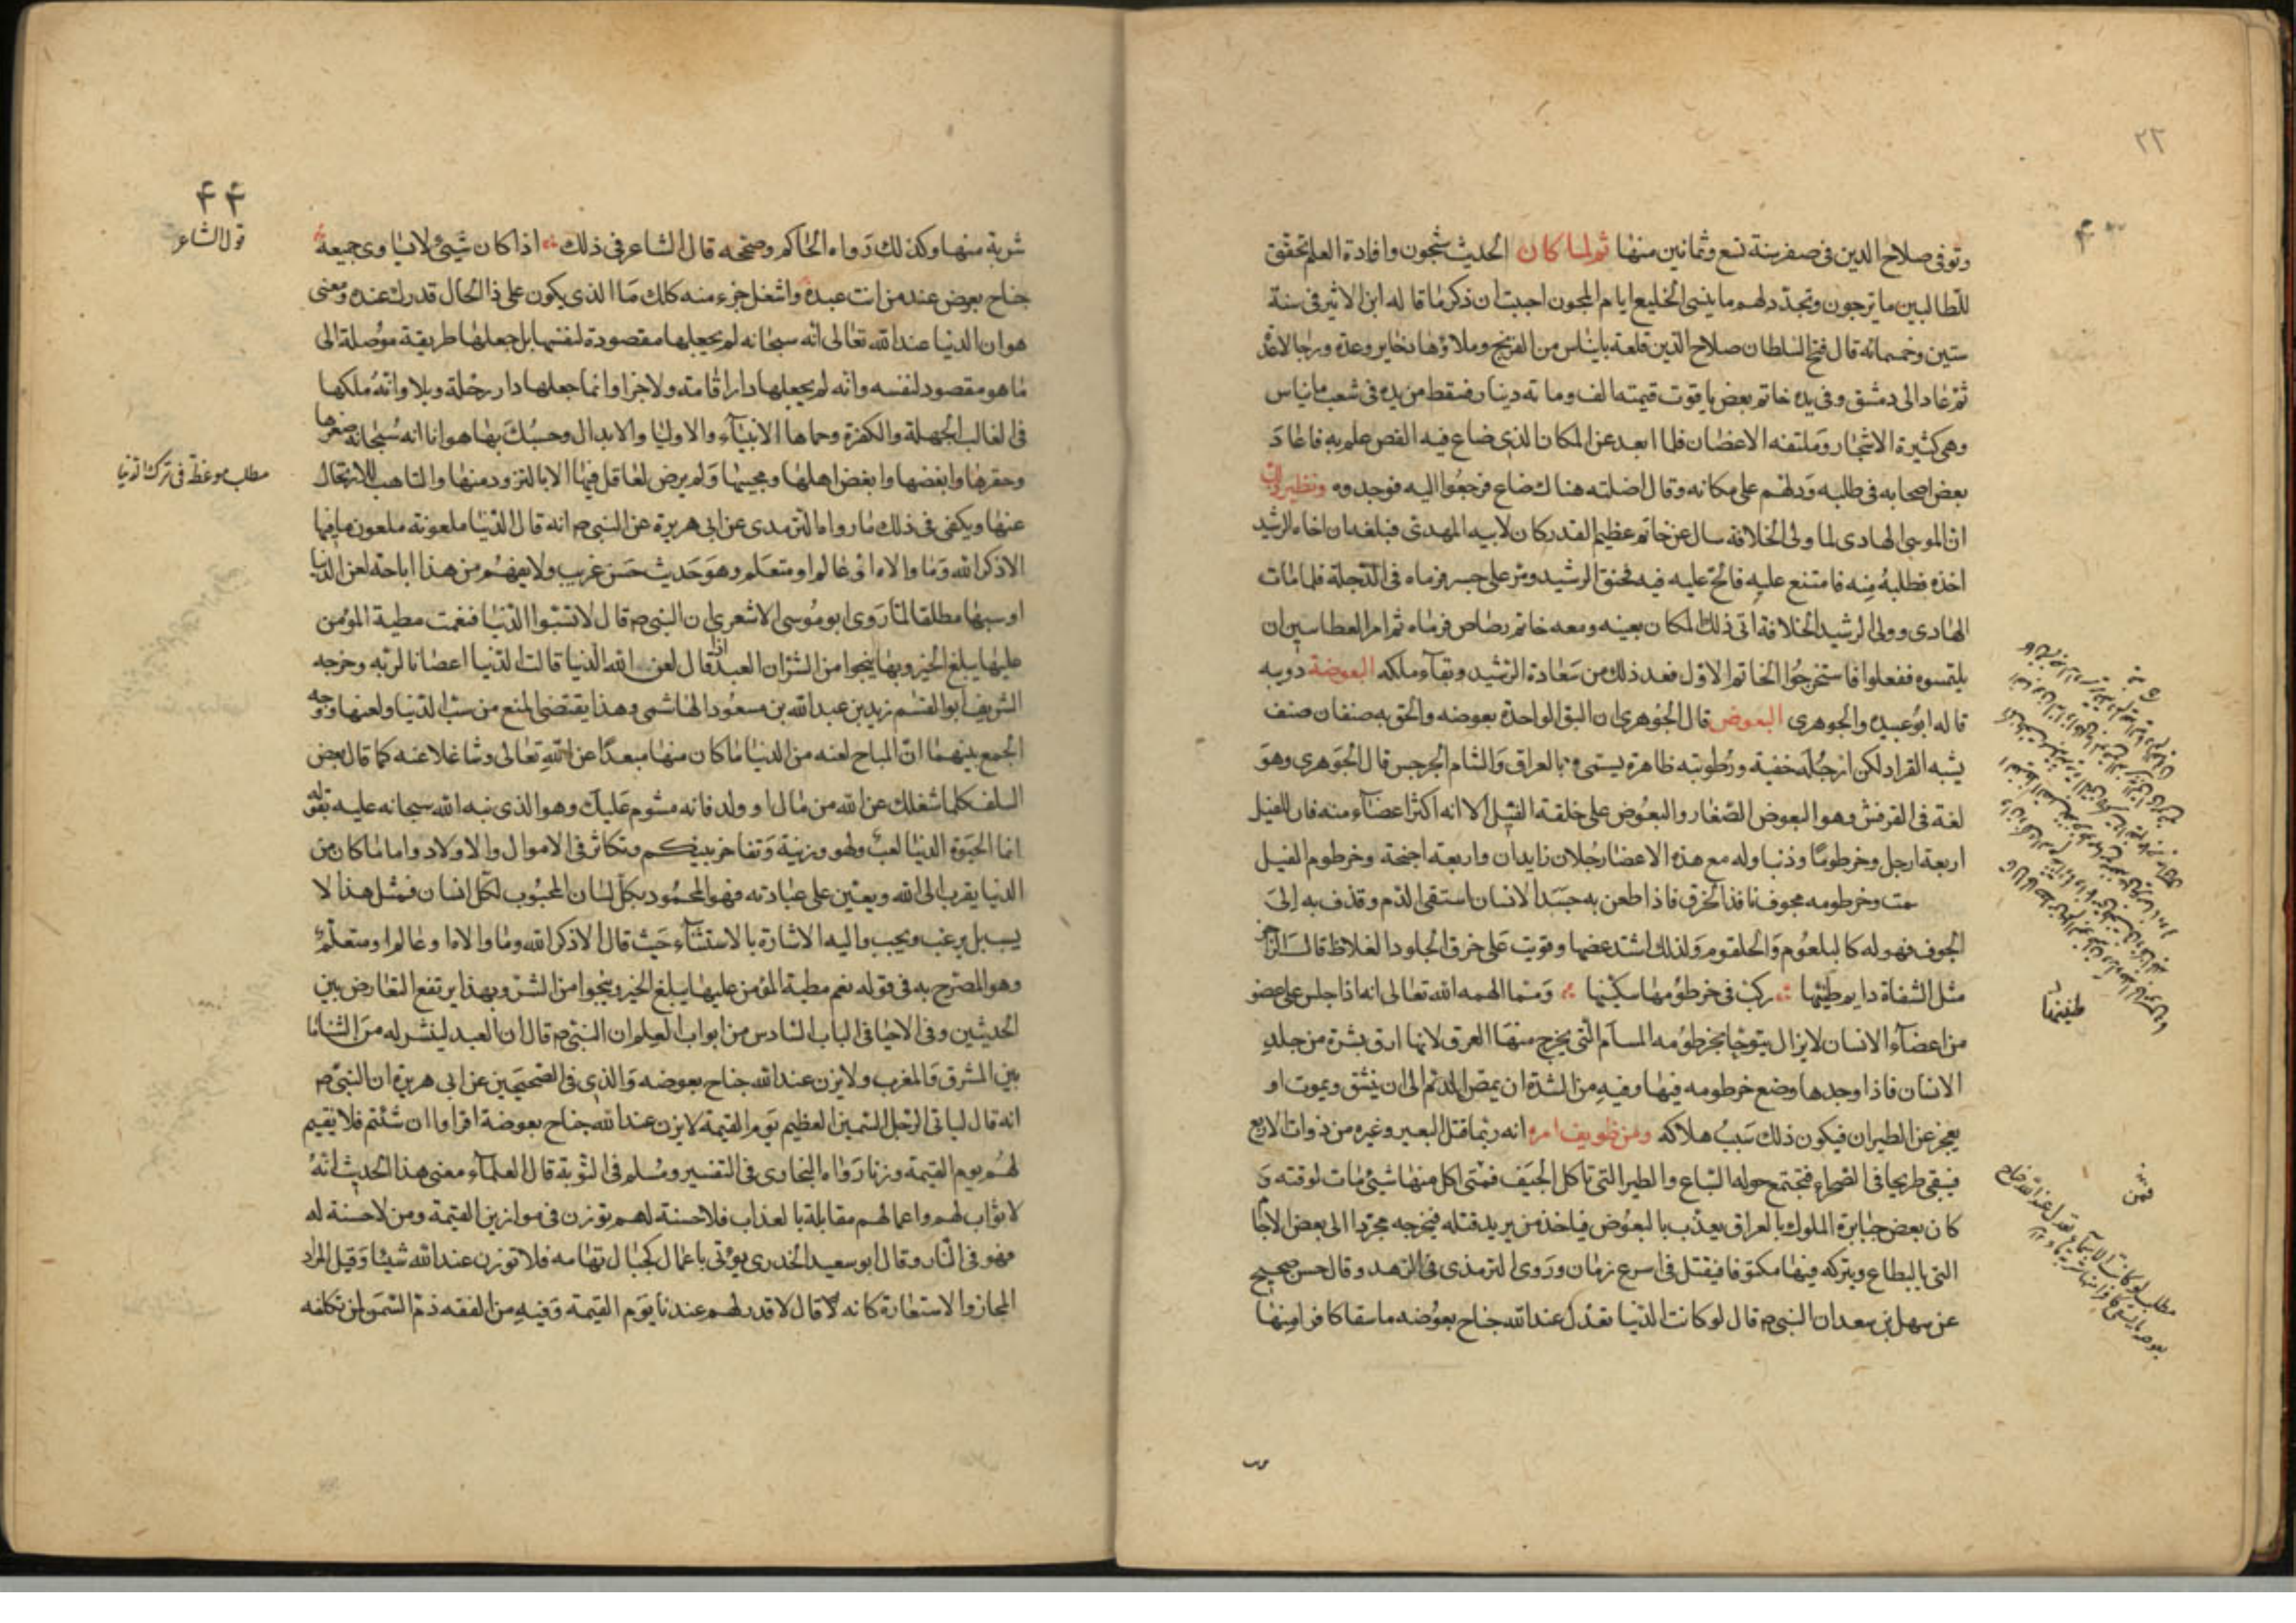 ٢٢
٤٣
وتوفى صلاح الدين فى صفر سنة تسع وثمانين منها ثم لما كان الحديث شجون وافادة العلم تحقق
للطالبين ما يرجون وتجدد لهم ما ينسى الخليع ايام المجون احببت ان ذكر ما قاله ابن الاثير فى سنة
ستين وخمسمائه قال فتح السلطان صلاح الدين قلعة بانياس من الفرنج وملاؤها ذخاير وعدة ورجالا
ثم عاد الى دمشق وفى يده خاتم بفص ياقوت قيمته الف ومائه دينار فسقط من يده فى شعب بانياس
وهى كثيرة الاشجار وملتفه الاغصان فلما ابعد عن المكان الذى ضاع فيه الفص علم به فاعاد
بعض اصحابه فى طلبه ودلهم على مكانه وقال اضلته هناك ضاع فرجعوا اليه فوجدوه ونظير
ان الموسى الهادى لما ولى الخلافة سال عن خاتم عظيم القدر كان لابيه المهدى فبلغه ان اخاه الرشيد
اخذه فطلبه منه فامتنع عليه فالح عليه فيه فحنق الرشيد ومر على جسر فرماه فى الدجلة فلما مات
الهادى وولى الرشيد الخلافة اتى ذلك المكان بعينه ومعه خاتم رصاص فرماه ثم امر الغطاسين ان
يلتمسوه ففعلوا فاستخرجوا الخاتم الاول فعد ذلك من سعادة الرشيد وبقآء ملكه البعوضة دويبه
قاله ابو عبيده والجوهرى البعوض قال الجوهرى ان البق الواحدة بعوضه والحق به صنفان صنف
يشبه القراد لكن ارجله خفية ورطوبته ظاهرة يسمى بالعراق والشام الجرجس قال الجوهرى وهو
لغة فى القرقش وهو البعوض الصغار والبعوض على خلقة الفيل الا انه اكثر اعضآء منه فان للفيل
اربعة ارجل وخرطوما وذنبا وله مع هذه الاعضا رجلان زايدان واربعة اجنحة وخرطوم الفيل
مصمت وخرطومه مجوف نافذ الخرق فاذا طعن به جسد الانسان استقى الدم وقذف به الى
الجوف فهو له كالبلعوم والحلقوم ولذلك اشتد عضها وقويت على خرق الجلود الغلاظ قال الراجز
مثل السفاة دايم طنينها ركب فى خرطومها سكينها ومما الهمه الله تعالى انه اذا جلس على عضو
طنينها
من اعضآء الانسان لا يزال يتوخا بخرطومه المسآم التى يخرج منها العرق لانها ارق بشرة من جلد
الانسان فاذا وجدها وضع خرطومه فيها وفيه من الشدة ان يمص الدم الى ان ينشق ويموت او
يعجز عن الطيران فيكون ذلك سبب هلاكه ومن ظريف امره انه ربما قتل البعير وغيره من ذوات الاربع
فيبقى طريحا فى الصحراء فتجتمع حوله السباع والطير التى تاكل الجيف فمتى اكل منها شيئ مات لوقته و
كان بعض جبابرة الملوك بالعراق يعذب بالبعوض فياخذ من يريد قتله فيخرجه مجردا الى بعض الاجا
التى بالبطاع ويتركه فيها مكتوفا فيقتل فى اسرع زمان وروى الترمذى فى الزهد وقال حسن صحيح
عن سهل بن سعد ان النبى م قال لو كانت الدنيا تعدل عند الله جناح بعوضه ما سقا كافرا منها
٤٤
قول الشاعر
شربة منها وكذلك رواه الحاكم وصححه قال الشاعر فى ذلك اذا كان شيئ لا يساوى جميعه
جناح بعوض عند من انت عبده واشغل جزء منه كلك ما الذى يكون على ذا الحال قدرك عنده ومعنى
هوان الدنيا عند الله تعالى انه سبحانه لم يجعلها مقصودة لنفسها بل جعلها طريقة موصلة الى
ما هو مقصود لنفسه وانه لم يجعلها دار اقامته ولا جزا وانما جعلها دار رحلة وبلا وانه ملكها
فى الغالب الجهلة والكفرة وحماها الانبيآء والاوليا والابدال وحسبك بها هوانا انه سبحانه صغرها
وحقرها وابغضها وابغض اهلها ومحبيها ولم يرض لعاقل فيها الا بالتزود منها والتاهب للارتحال
مطلب موعظة فى ترك الدنيا
عنها ويكفى فى ذلك ما رواه الترمدى عن ابى هريرة عن النبى م انه قال الدنيا ملعونة ملعون ما فيها
الا ذكر الله وما والاه او عالم او متعلم وهو حديث حسن غريب ولا يفهم من هذا اباحة لعن الدنيا
او سبها مطلقا لما روى ابو موسى الاشعرى ان النبى م قال لا تسبوا الدنيا فنعمت مطية المؤمن
عليها يبلغ الخير وبها ينجوا من الشر ان العبد اذا قال لعن الله الدنيا قالت الدنيا اعصانا لربه وخرجه
الشريف ابو القسم زيد بن عبد الله بن مسعود الهاشمى وهذا يقتضى المنع من سب الدنيا ولعنها ووجه
الجمع بينهما ان المباح لعنه من الدنيا ما كان منها مبعدا عن الله تعالى وشاغلا عنه كما قال بعض
السلف كلما شغلك عن الله من مال او ولد فانه مشوم عليك وهو الذى نبه الله سبحانه عليه بقوله
انما الحيوة الدنيا لعب ولهو وزنية وتفاخر بينكم وتكاثر فى الاموال والاولاد واما ما كان من
الدنيا يقرب الى الله ويعين على عبادته فهو المحمود بكل لسان المحبوب لكل انسان فمثل هذا لا
يسب بل يرغب ويحب واليه الاشارة بالاستثنآء حيث قال الا ذكر الله وما والاه او عالم او متعلم
وهو المصرح به فى قوله نعم مطية المؤمن عليها يبلغ الخير وينجوا من الشر وبهذا يرتفع التعارض بين
الحديثين وفى الاحيا فى الباب السادس من ابواب العلم ان النبى م قال ان العبد لينشر له من الثنا ما
بين المشرق والمغرب ولا يزن عند الله جناح بعوضه والذى فى الصحيحين عن ابى هريرة ان النبى م
انه قال لياتى الرجل السمين العظيم يوم القيمة لا يزن عند الله جناح بعوضة اقراوا ان شئتم فلا نقيم
لهم يوم القيمة وزنا رواه البخارى فى التفسير ومسلم فى التوبة قال العلمآء معنى هذا الحديث انه
لا ثواب لهم واعمالهم مقابلة بالعذاب فلا حسنة لهم توزن فى موازين القيمة ومن لا حسنة له
فهو فى النار وقال ابو سعيد الخدرى يؤتى باعمال كجبال تهامه فلا توزن عند الله شيئا وقيل المراد
المجاز والاستعارة كانه قال لا قدر لهم عندنا يوم القيمة وفيه من الفقه ذم السمن لمن تكلفه